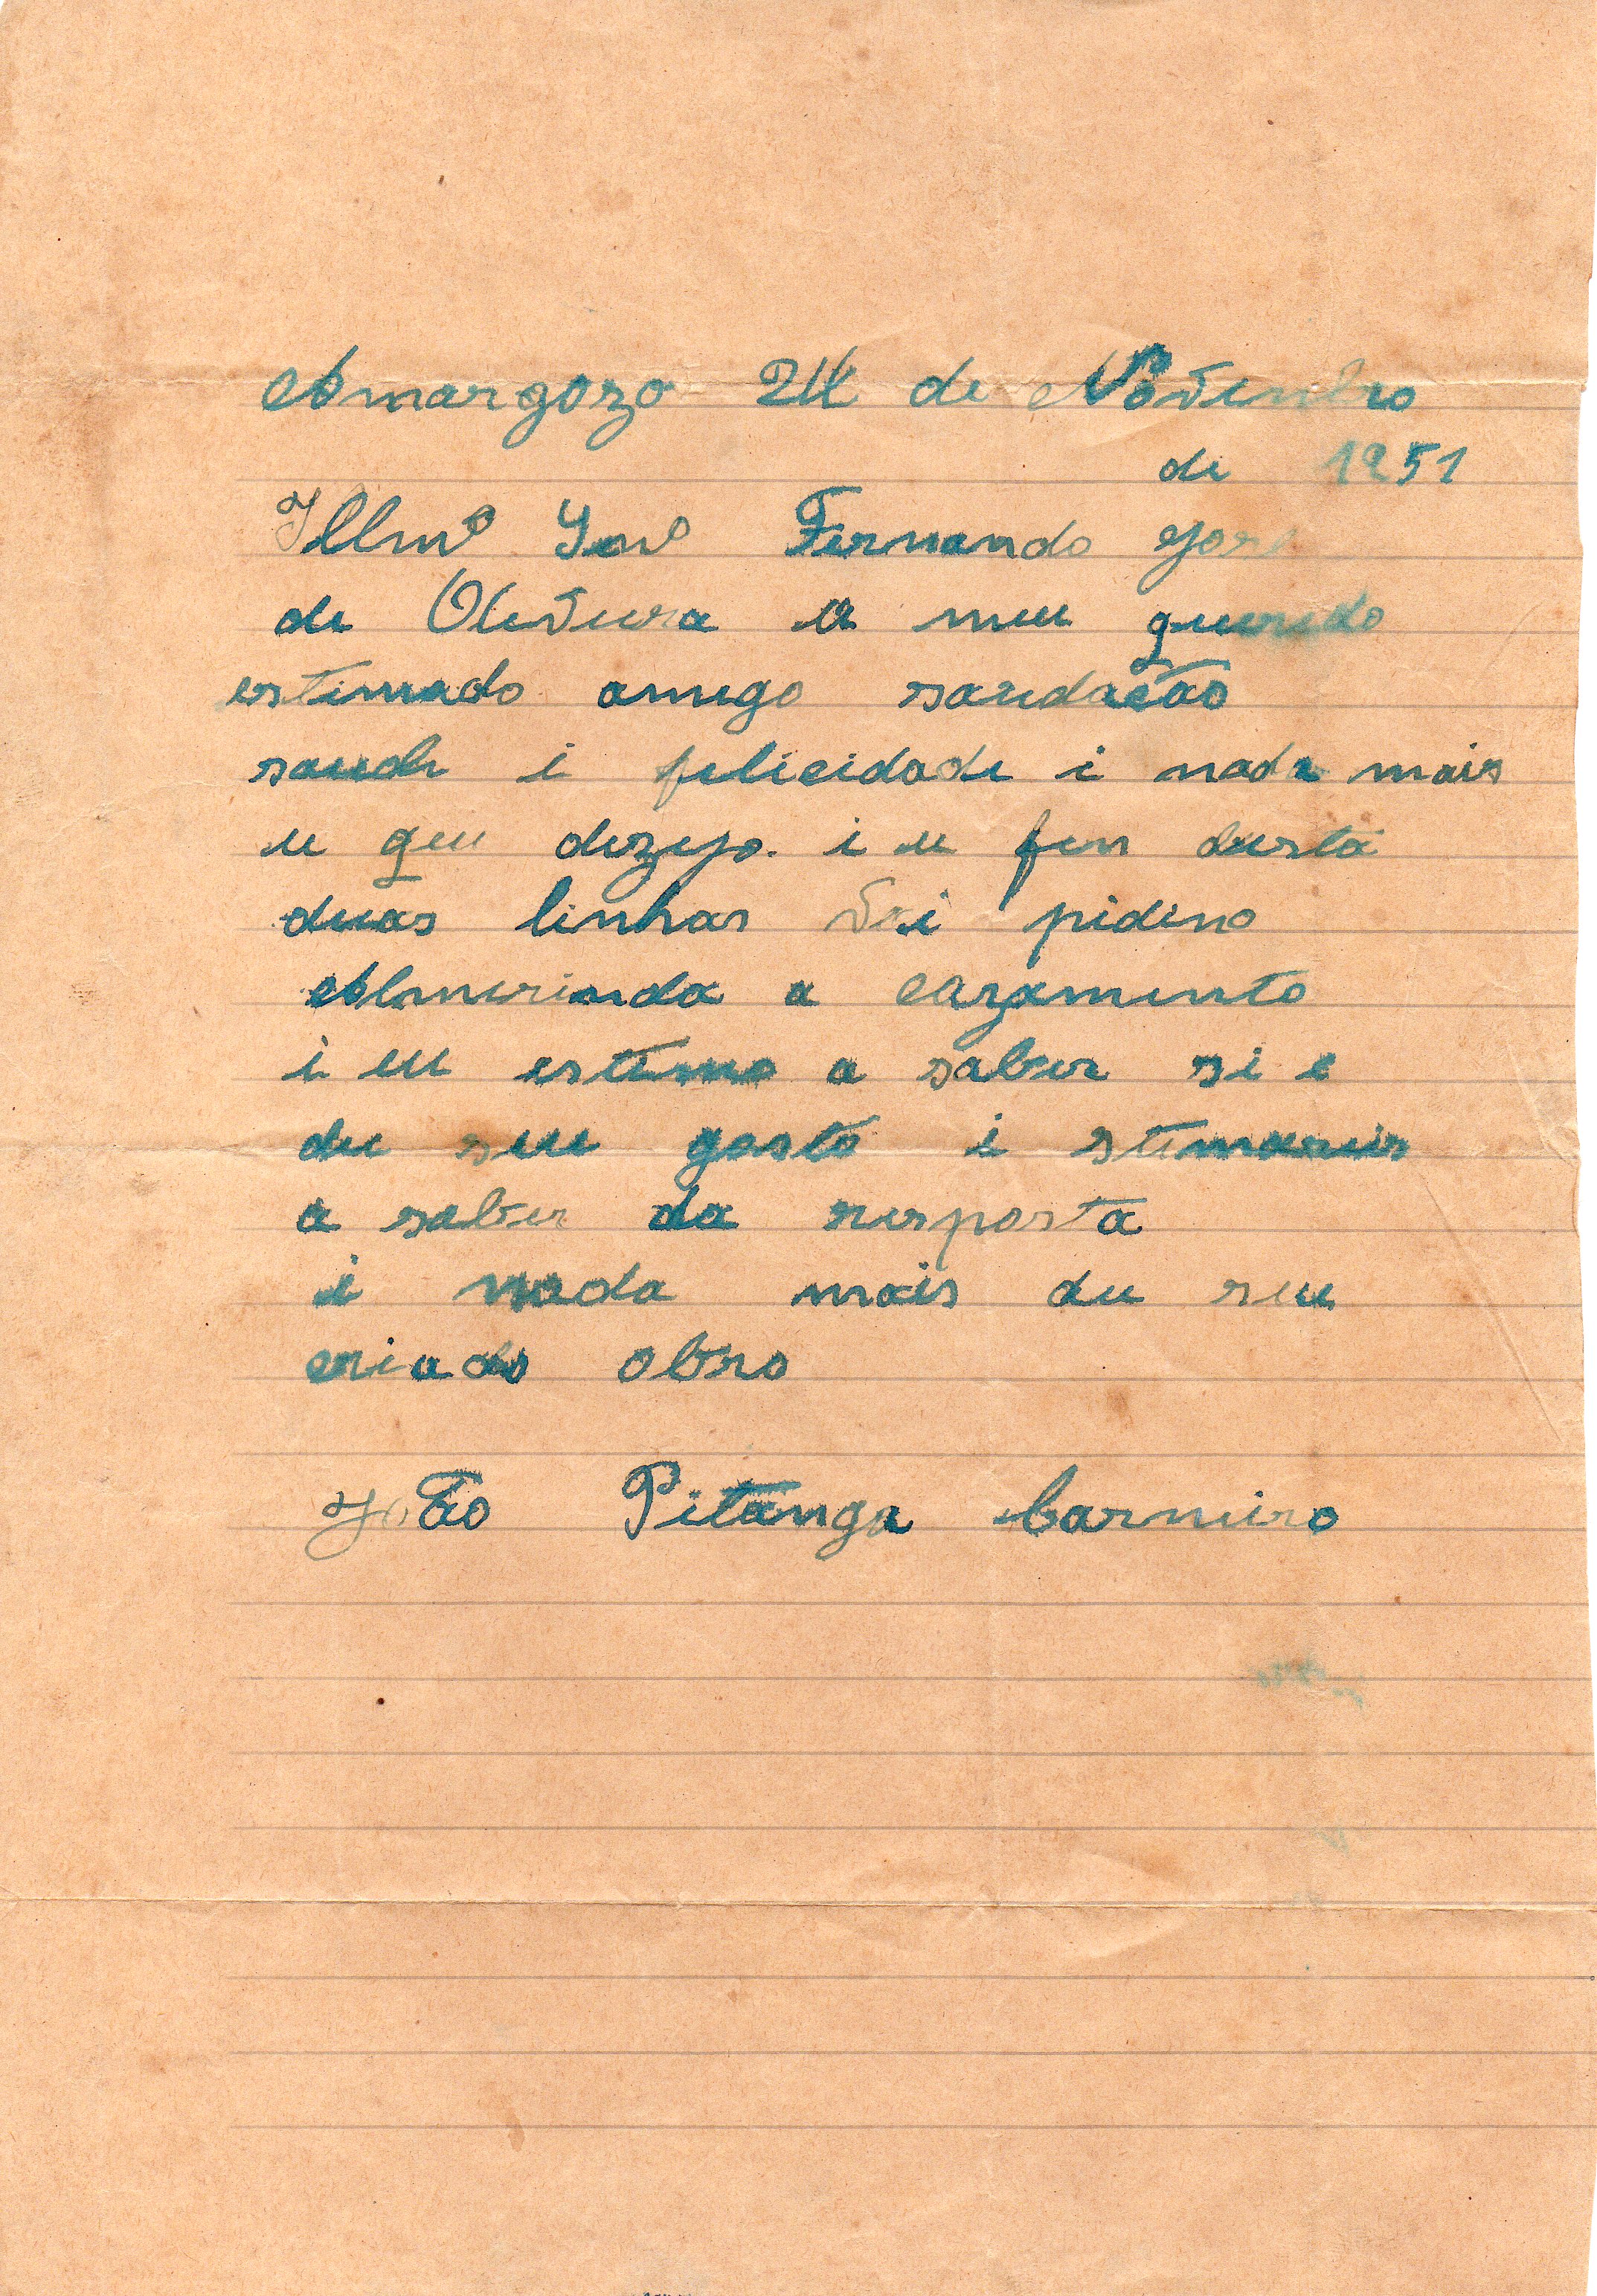 Amargozo 24 de Novenbro
de 1951
Illmº Snrº Fernando Jose
de Oliveira a meu querido
estimado amigo saudacão
saude i felicidade i nada mais
e que dezejo. i u fin desta
duas linhas vai pidino
Almerinda a cazamento
i eu estimo a saber si e
du seu gosto i stimareis
a saber da resposta
i nada mais du seu
criado obro
João Pitanga Carneiro